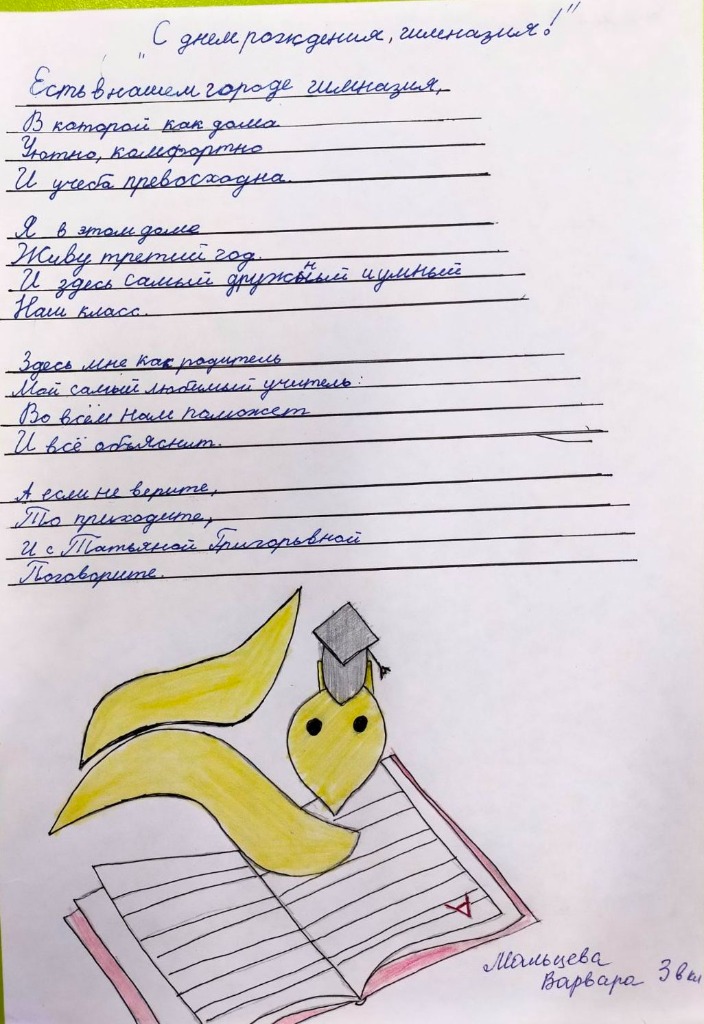 "С днем рождения, гимназия!"
Есть в нашем городе гимназия,
В которой как дома
Уютно, комфортно
И учеба превосходна.
Я в этом доме
Живу третий год.
И здесь самый дружный и умный
Наш класс.
Здесь мне как родитель
Мой самый любимый учитель:
Во всём нам поможет
И всё объяснит.
А если не верите,
То приходите,
И с Татьяной Григорьвной
Поговорите.
А
Мальцева
Варвара 3 в кл